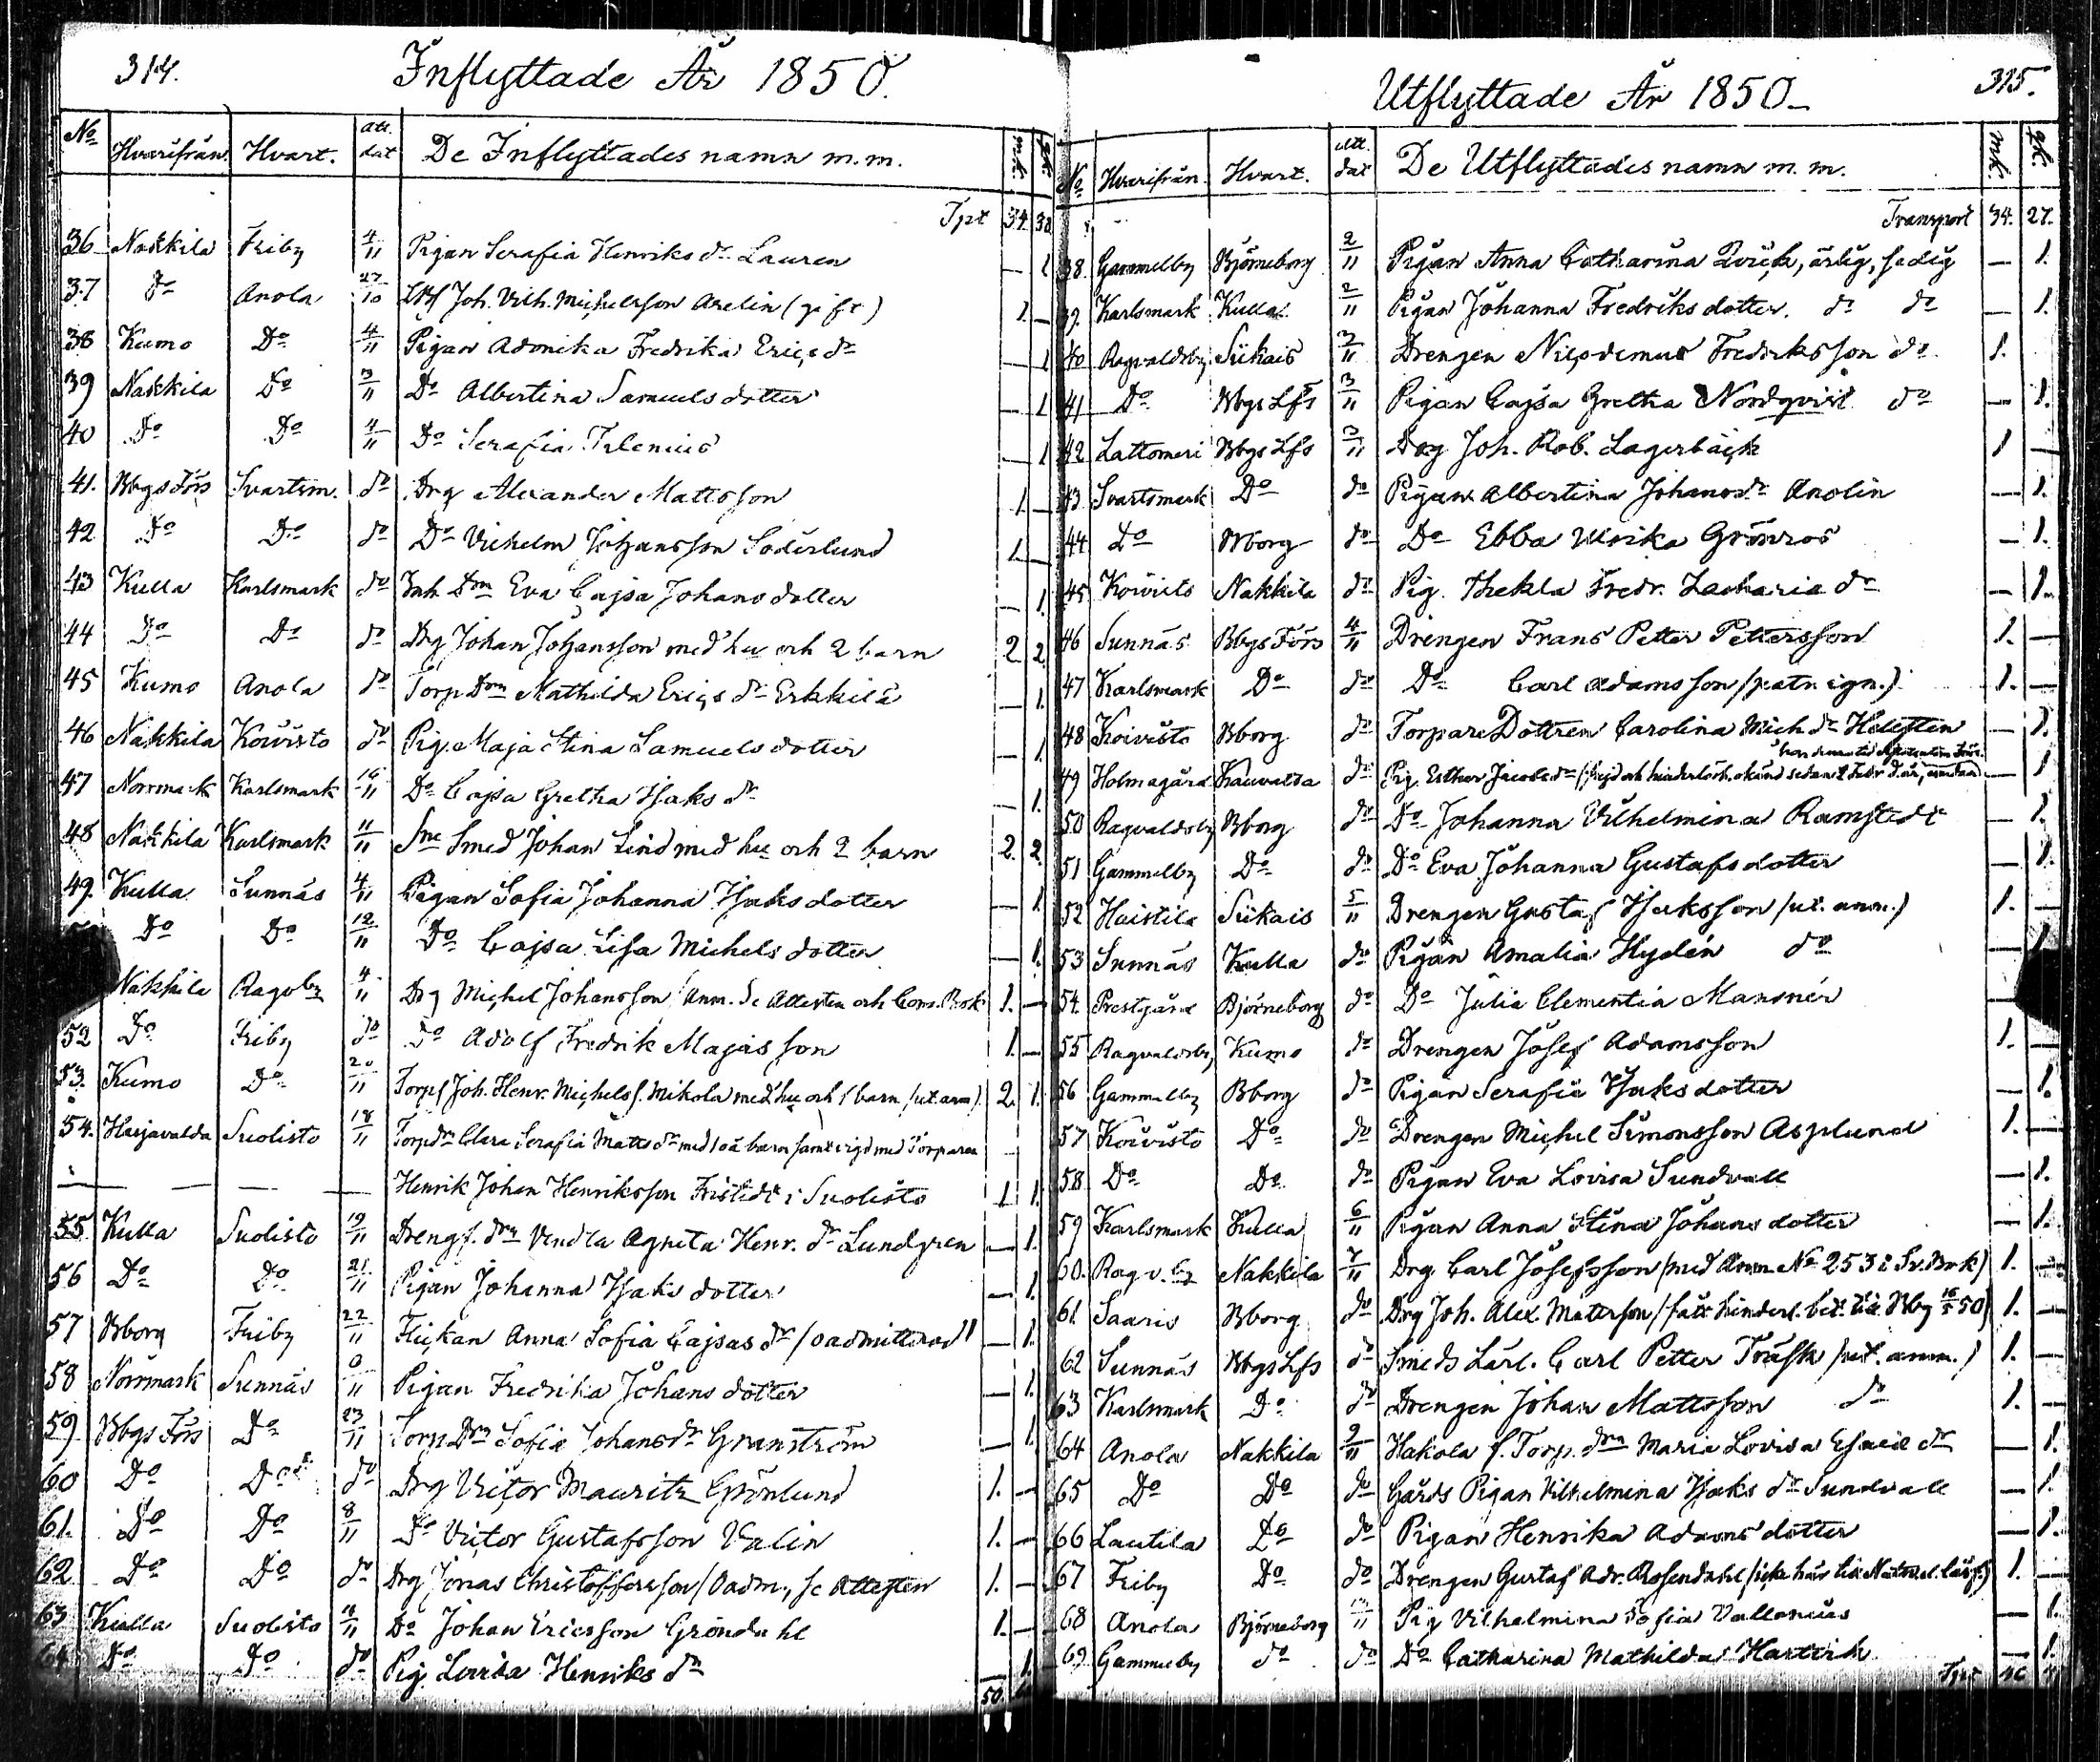 314.
Inflyttade År 1850.
No Hvarifrån. Hvart. att. dat De Inflyttades namn m.m. mk. qk.
Tpt 34. 38
36 Nakkila Friby 4/11 Pigan Serafia Henriks dr Lauren — 1
37 Do Anola 27/10 Joh. Vilh. Michelsson Arelin (gift) 1. —
38 Kumo Do 4/11 Pigan Adonika Fredrika Erics dr — 1
39 Nakkila Do 3/11 Do Albertina Samuels dotter — 1
40 Do Do 4/11 Do Serafia — 1
41. Bbgs Förs Svartsm. do Drg Alexander Mattsson 1 —
42 Do Do do Do Vilhelm Johansson Söderlund 1 —
43 Kulla Karlsmark do Inh. Drn Eva Cajsa Johans dotter — 1.
44 Do Do do Drg Johan Johansson med hu och 2 barn 2 2
45 Kumo Anola do Torp Drn Mathilda Erics dr Erkkilä — 1.
46 Nakkila Koivisto do Pig. Maja Stina Samuels dotter — 1.
47 Norrmark Karlsmark 16/11 Do Cajsa Gretha Isaks dr — 1.
48 Nakkila Karlsmark 11/11 Sne Smed Johan Lind med hu och 2 barn 2. 2.
49. Kulla Sunnäs 4/11 Pigan Sofia Johanna Isaks dotter — 1.
Do Do 12/11 Do Cajsa Lisa Michels dotter — 1.
Nakkila Ragvby 4/11 Drg Michel Johansson (Anm. Se Attesten och Com. Bok 1. —
52 Do Friby do Do Adolf Fredrik Majasson 1. —
53. Kumo Do 20/11 Torp. Joh. Henr. Michelss. Mikola med hu och 1 barn (ut. anm.) 2. 1.
54. Harjavalda Suolisto 18/11 Torp dr Clara Serafia Matts dr med 1 oä barn samt vigd med Torparen
— — — — Henrik Johan Henriksson Fristedt i Suolisto 1 1.
55. Kulla Suolisto 19/11 Drengs. drn Vendla Agneta Henr. dr Lundgren — 1.
56 Do Do 21/11 Pigan Johanna Isaks dotter — 1.
57 Bborg Friby 22/11 Flickan Anna Sofia Cajsas dr (oadmitterad — 1.
58 Norrmark Sunnäs 11 Pigan Fredrika Johans dotter — 1.
59 Bbgs Förs Do 23/11 Torp. Drn Sofia Johans dr Granström — 1.
60 Do Do do Drg Victor Mauritz Grönlund 1. —
61. Do Do 8/11 Do Victor Gustafsson Valin 1. —
62. Do Do do Drg Jonas Christoffersson (Oadm., se Attesten 1. —
63 Kulla Suolisto 11 Do Johan Ericsson Gröndahl 1. —
64 Do Do do Pig. Lovisa Henriks dr — 1.
50
315.
Utflyttade År 1850
No Hvarifrån. Hvart. att. dat De Utflyttades namn m.m. mk. qk.
Transport 34. 27.
38. Gammelby Björneborg 2/11 Pigan Anna Catharina Qvick, ärlig, sedig — 1.
39. Karlsmark Kulla 2/11 Pigan Johanna Fredriks dotter. do do — 1.
40 Ragvaldsby Siikais 2/11 Drengen Nicodemus Fredriksson do 1.
41 Do Bbgs Lfs 3/11 Pigan Cajsa Gretha Nordqvist do — 1.
42 Lattomeri Bbgs Lfs 3/11 Drg Joh. Rob. Lagerbäck 1 —
43 Svartsmark Do do Pigan Albertina Johans dr Anolin — 1.
44 Do Bborg do Do Ebba Ulrika Grönros — 1.
45 Koivisto Nakkila do Pig. Thekla Fredr. Zacharia dr — 1.
46 Sunnäs Bbgs Förs 4/11 Drengen Frans Petter Pettersson 1. —
47 Karlsmark Do do Do Carl Adamsson (patr. ign.) 1. —
48 Koivisto Bborg do Torpare Dottren Carolina Mich. dr Helesten — 1.
49 Holmagård Kauvatsa do Pig. Esther Jacobs dr — 1
50 Ragvaldsby Bborg do Do Johanna Vilhelmina Ramstedt — 1.
51 Gammelby Do do Do Eva Johanna Gustafs dotter — 1.
52 Haistila Siikais 5/11 Drengen Gustaf Isaksson (ut. anm.) 1. —
53 Sunnäs Kulla do Pigan Amalia Hydén do — 1
54. Prestgård Björneborg do Do Julia Clementia Mansnér —
55 Ragvaldsby Kumo do Drengen Josef Adamsson 1. —
56 Gammelby Bborg do Pigan Serafia Isaks dotter — 1.
57 Koivisto Do do Drengen Michel Simonsson Asplund 1. —
58. Do Do do Pigan Eva Lovisa Sundvall — 1.
59 Karlsmark Kulla 6/11 Pigan Anna Stina Johans dotter — 1.
60. Ragv.by Nakkila 7/11 Drg Carl Josefsson (med Anm No 253 i Sv. Brk) 1. —
61. Saaris Bborg do Drg Joh. Alex. Mattsson (fått hinderl. bet. till Bbg 50) 1. —
62 Sunnäs Bbgs Lfs do Smeds Lärl. Carl Petter Träsk (ut. anm.) 1. —
63 Karlsmark Do do Drengen Johan Mattsson do 1. —
64 Anola Nakkila 9/11 Hakola s. Torp. drn Maria Lovisa Esaie dr — 1.
65 Do Do do Gårds Pigan Vilhelmina Isaks dr Sundvall — 1.
66 Lautila Do do Pigan Henrika Adams dotter — 1.
67 Friby Do do Drengen Gustaf Adr. Rosendahl 1. —
68 Anola Björneborg 11 Pig Vilhelmina Sofia Vallenius — 1.
69. Gammelby do do Do Catharina Mathilda Hartvik — 1.
Tpt 46